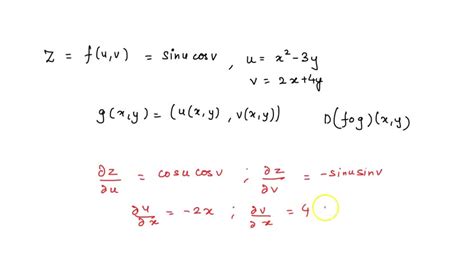 Z = f(u,v) = sinu cosv , u = x²-3y
v = 2x+4y
g(x,y) = (u(x,y) , v(x,y)) D(fog)(x,y)
∂z/∂u = cosu cosv ; ∂z/∂v = -sinu sinv
∂u/∂x = -2x ; ∂v/∂x = 4